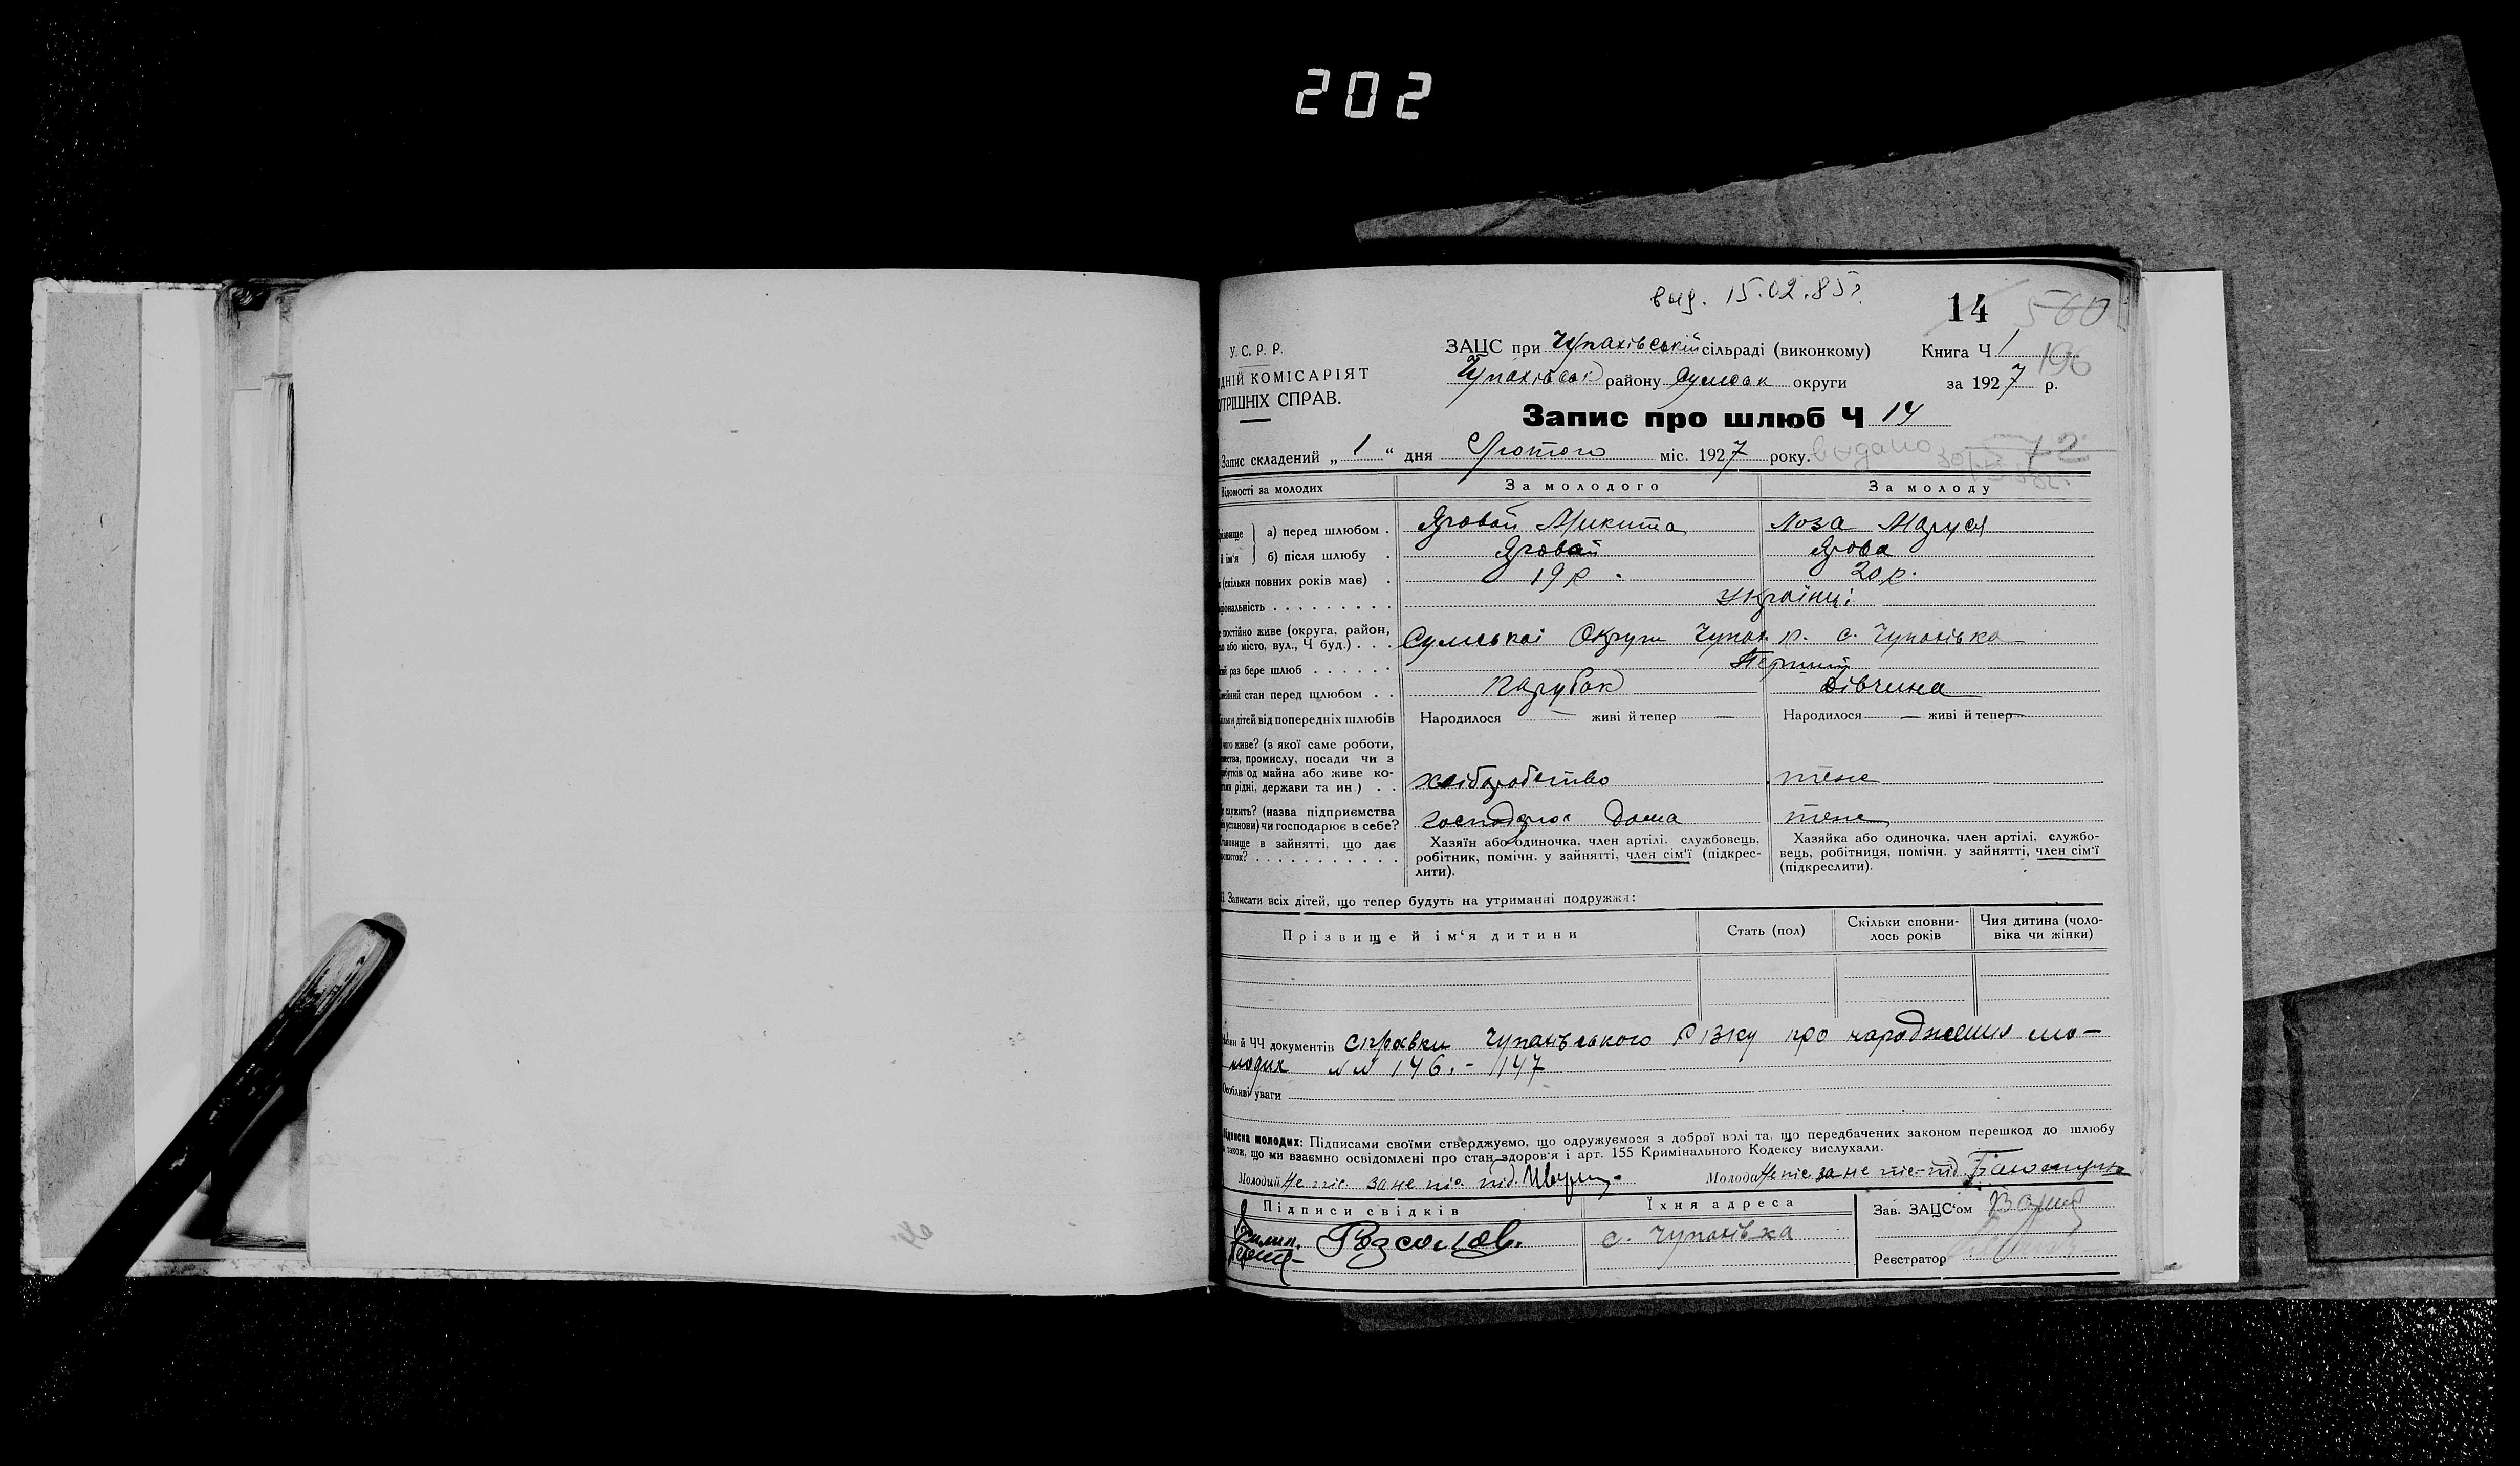 202
вид. 15.02.85г.
14 560
У.С.Р.Р.
ОДНІЙ КОМІСАРІЯТ
УТРІШНІХ СПРАВ.
ЗАЦС при Чупахівській сільраді (виконкому) Книга Ч 1
196
Чупахівськ району Сумськ округи за 1927 р.
Запис про шлюб Ч 14
Запис складений „ 1 “ дня Лютого міс. 1927 року. видано
Відомості за молодих За молодого За молоду
різвище й ім'я а) перед шлюбом . Яговай Микита Лоза Маруся
б) після шлюбу . Яговай Ягова
(скільки повних років має) . 19 р. 20 р.
ціональність . . . . . . . . . Українці
постійно живе (округа, район, або місто, вул., Ч буд.) . . . Сумської Округи Чупах. р. с. Чупахівка
раз бере шлюб . . . . . . Перший
мейний стан перед шлюбом . . парубок дівчина
дітей від попередніх шлюбів Народилося — живі й тепер — Народилося — живі й тепер —
чого живе? (з якої саме роботи,
мества, промислу, посади чи з
бутків од майна або живе ко-
рідні, держави та ин.) . . хліборобство теж
служить? (назва підприємства
установи) чи господарює в себе? господарює дома теж
тановище в зайнятті, що дає
житок? . . . . . . . . . . .
Хазяїн або одиночка, член артілі, службовець,
робітник, помічн. у зайнятті, член сім'ї (підкрес-
лити).
Хазяйка або одиночка, член артілі, службо-
вець, робітниця, помічн. у зайнятті, член сім'ї
(підкреслити).
Записати всіх дітей, що тепер будуть на утриманні подружжя:
Прізвище й ім'я дитини Стать (пол) Скільки сповни-
лось років Чия дитина (чоло-
віка чи жінки)
й ЧЧ документів справки Чупахівського РВЗКу про народження мо-
лодих №№ 146. - 147
Особливі уваги
ідписка молодих: Підписами своїми стверджуємо, що одружуємося з доброї волі та, що передбачених законом перешкод до шлюбу
також, що ми взаємно освідомлені про стан здоров'я і арт. 155 Кримінального Кодексу вислухали.
Молодий не пис. за не пис. під. Молода не пис за не пис- під.
Підписи свідків Їхня адреса Зав. ЗАЦС'ом
с. Чупахівка
Реєстратор